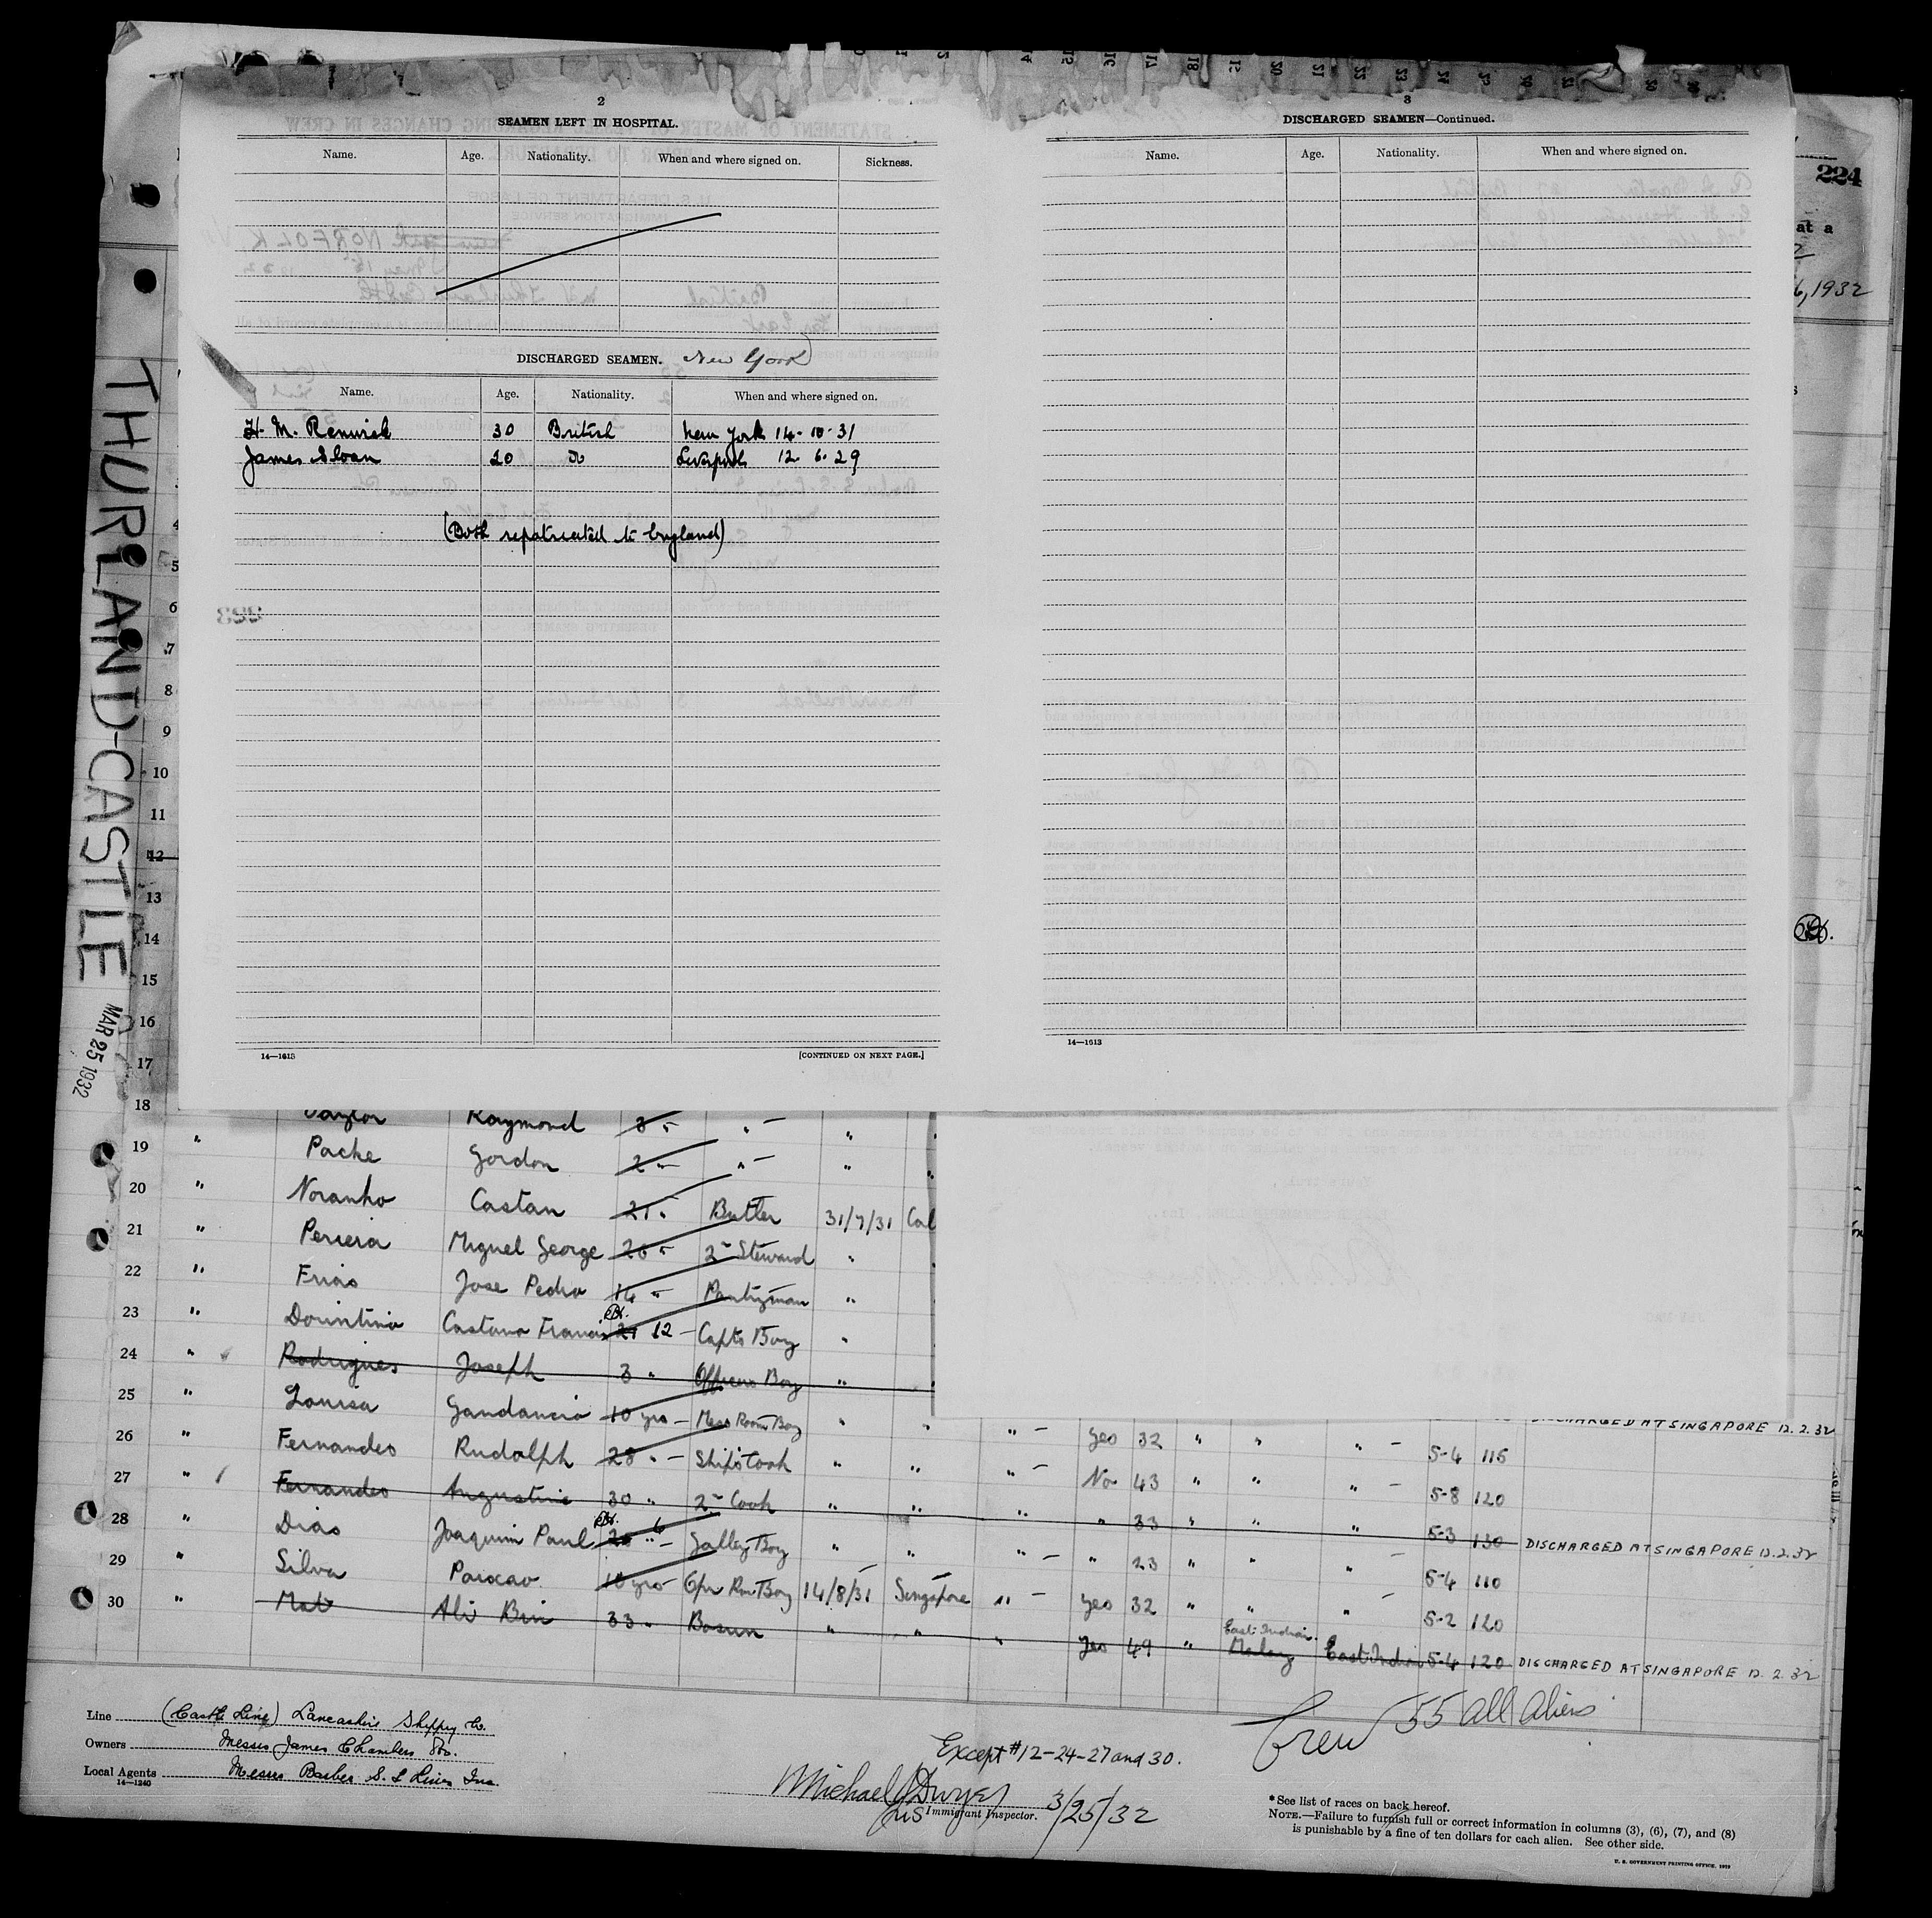 2
SEAMEN LEFT IN HOSPITAL.
Name. Age. Nationality. When and where signed on. Sickness.
DISCHARGED SEAMEN. New York
Name. Age. Nationality. When and where signed on.
H. M. Renwick 30 British New York 14-10-31
James Sloan 20 do Liverpool 12.6.29
(Both repatriated to England)
14—1613 [CONTINUED ON NEXT PAGE.]
3
DISCHARGED SEAMEN—Continued.
Name. Age. Nationality. When and where signed on.
14—1613
224
at a
6, 1932
THURLAND-CASTLE
MAR 25 1932
4
5
6
7
8
9
10
11
12
13
14
15
16
17
18 Taylor Raymond 3 " " - "
19 " Pache Gordon 2 " " - "
20 " Noranho Castan 21 " Butler 31/7/31 Cal
21 " Perieia Miguel George 26 " 2nd Steward "
22 " Frias Jose Pedro 14 " Pantryman "
23 " Dorintino Castano Francis 21 12 - Capts Boy "
24 " Rodrigues Joseph 3 " Officers Boy "
25 " Louisa Gandancio 10 yrs - Mess Room Boy " " " - yes 32 " " " - 5-4 115
DISCHARGED AT SINGAPORE 12.2.32
26 " Fernandes Rudolph 28 " - Ship's Cook " " " - No 43 " " " - 5-8 120
27 " Fernandes Augustine 30 " 2nd Cook " " " " 33 " " " 5-3 130 DISCHARGED AT SINGAPORE 12.2.32
28 " Dias Joaquim Paul 26 6 " - Galley Boy " " " - " 23 " " " - 5-4 110
29 " Silva Paixcao 10 yrs - Gpr Rm Boy 14/8/31 Singapore " - yes 32 " " " - 5-2 120
30 " Mat Ali Bin 33 " Bosun " " " Yes 49 " East Indian Malay East Indian 5-4 120 DISCHARGED AT SINGAPORE 12.2.32
Line (Castle Line) Lancashire Shippg Co.
Owners Messrs James Chambers & Co.
Local Agents Messrs Barber S. S Lines Inc.
14—1240
Except #12-24-27 and 30.
Crew 55 all aliens
Michael J Dwyer
US Immigrant Inspector. 3/25/32
*See list of races on back hereof.
NOTE.—Failure to furnish full or correct information in columns (3), (6), (7), and (8)
is punishable by a fine of ten dollars for each alien. See other side.
U. S. GOVERNMENT PRINTING OFFICE. 1929